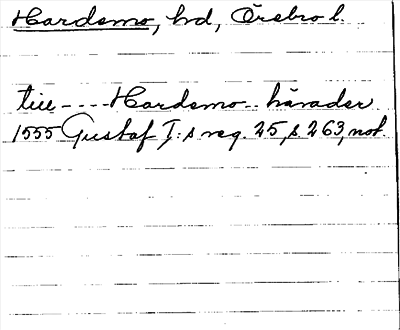 Hardemo, hd, Örebro l.
till ---- Hardemo -- härader
1555 Gustaf I:s reg. 25, s. 263, not.